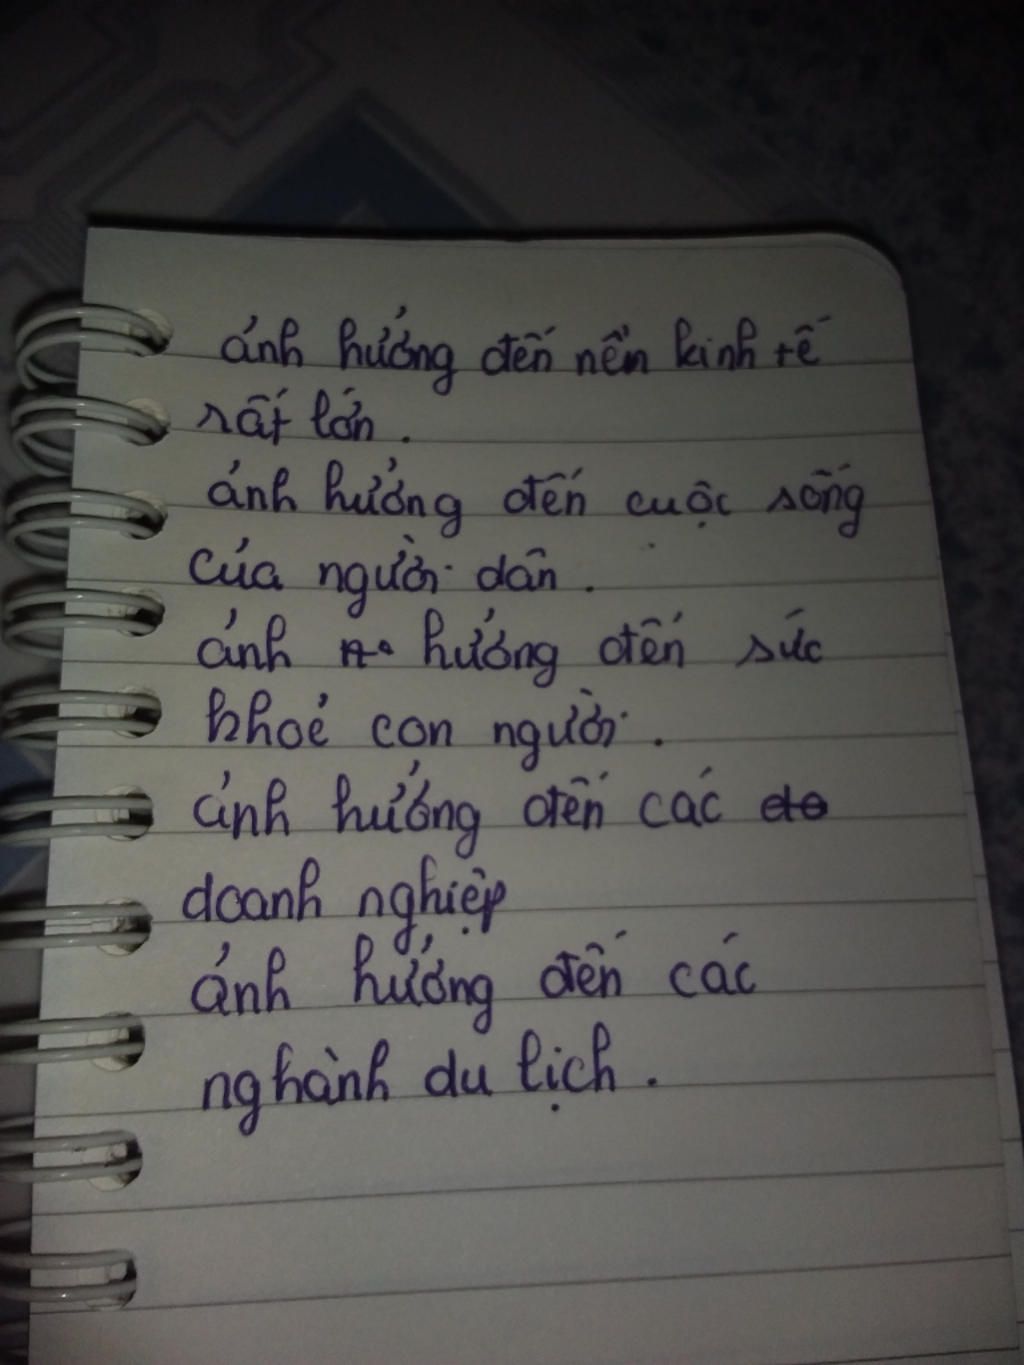 ảnh hưởng đến nền kinh tế
rất lớn.
ảnh hưởng đến cuộc sống
của người dân.
ảnh hưởng đến sức
khoẻ con người.
ảnh hưởng đến các
doanh nghiệp
ảnh hưởng đến các
nghành du lịch.